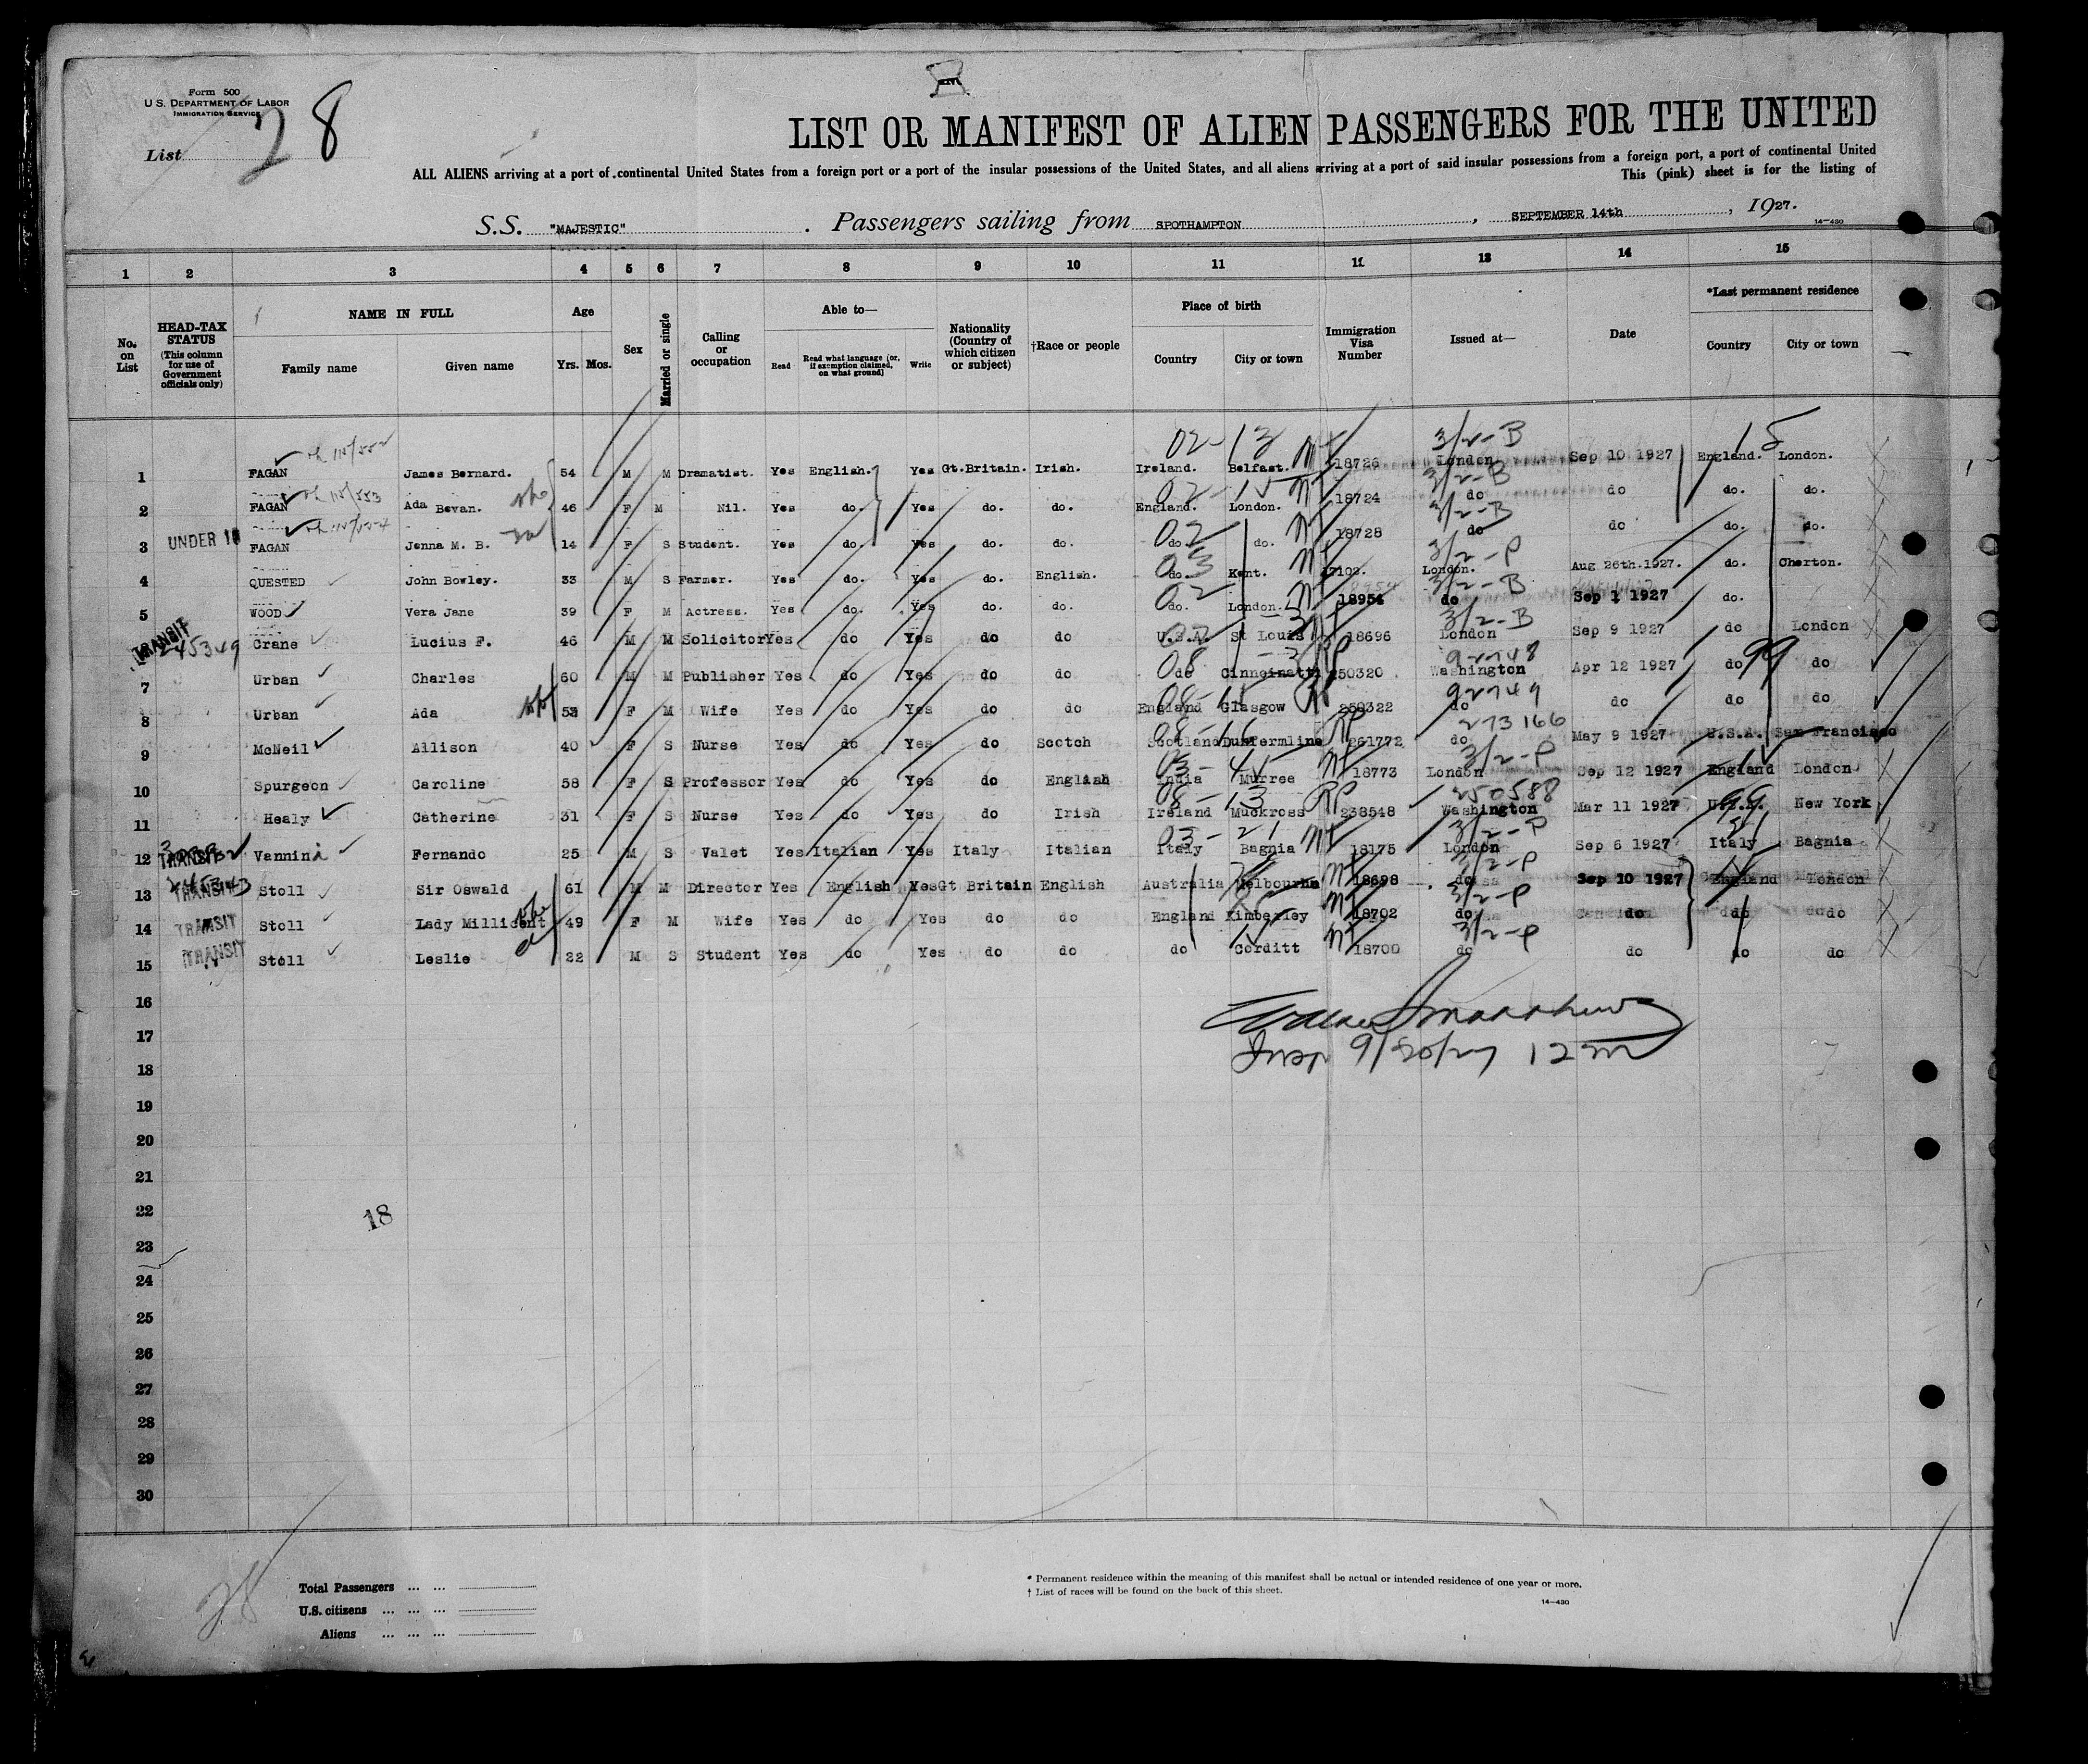 Form 500
U.S. DEPARTMENT OF LABOR
IMMIGRATION SERVICE
List 28
LIST OR MANIFEST OF ALIEN PASSENGERS FOR THE UNITED
ALL ALIENS arriving at a port of continental United States from a foreign port or a port of the insular possessions of the United States, and all aliens arriving at a port of said insular possessions from a foreign port, a port of continental United
This (pink) sheet is for the listing of
S.S. "MAJESTIC". Passengers sailing from SPOTHAMPTON, SEPTEMBER 14th, 1927.
14-430
1 2 3 4 5 6 7 8 9 10 11 11 13 14 15
No. on List
HEAD-TAX STATUS (This column for use of Government officials only)
NAME IN FULL
Family name Given name
Age
Yrs. Mos.
Sex
Married or single
Calling or occupation
Able to—
Read Read what language (or, if exemption claimed, on what ground) Write
Nationality (Country of which citizen or subject)
†Race or people
Place of birth
Country City or town
Immigration Visa Number
Issued at—
Date
*Last permanent residence
Country City or town
02-13 3/2-B 15
1 FAGAN James Bernard. 54 M M Dramatist. Yes English. Yes Gt.Britain. Irish. Ireland. Belfast. 18726 London Sep 10 1927 England. London.
3/2-B
2 FAGAN Ada Bevan. 46 F M Nil. Yes do. Yes do. do. England. London. 18724 do do do. do.
3/2-B
3 UNDER 1 FAGAN Jenna M. B. 14 F S Student. Yes do. Yes do. do. do. do. 18728 do do do. do.
3/2-P
4 QUESTED John Bowley. 33 M S Farmer. Yes do. Yes do. English. do. Kent. 17102. London. Aug 26th.1927. do. Cherton.
3/2-B
5 WOOD Vera Jane 39 F M Actress. Yes do. Yes do. do. do. London. 18954 do Sep 1 1927 do.
3/2-B
TRANSIT 245349 Crane Lucius F. 46 M M Solicitor Yes do Yes do do U.S.A. St Louis 18696 London Sep 9 1927 do London
92748 99
7 Urban Charles 60 M M Publisher Yes do Yes do do do Cinncinatti 250320 Washington Apr 12 1927 do do
92749
8 Urban Ada 53 F M Wife Yes do Yes do do England Glasgow 250322 do do do do
273166
9 McNeil Allison 40 F S Nurse Yes do Yes do Scotch Scotland Dunfermline 261772 do May 9 1927 U.S.A. San Francisco
3/2-P
10 Spurgeon Caroline 58 F S Professor Yes do Yes do English India Murree 18773 London Sep 12 1927 England London
08-13 RP 250588
11 Healy Catherine 31 F S Nurse Yes do Yes do Irish Ireland Muckross 238548 Washington Mar 11 1927 New York
03-21 3/2-P
12 TRANSIT Vannini Fernando 25 M S Valet Yes Italian Yes Italy Italian Italy Bagnia 18175 London Sep 6 1927 Italy Bagnia
3/2-P
13 TRANSIT 245343 Stoll Sir Oswald 61 M M Director Yes English Yes Gt Britain English Australia Melbourne 18698 do Sep 10 1927 England London
3/2-P
14 TRANSIT Stoll Lady Millicent 49 F M Wife Yes do Yes do do England Kimberley 18702 do do do do
3/2-P
15 TRANSIT Stoll Leslie 22 M S Student Yes do Yes do do do Corditt 18700 do do do do
16
17
Insp 9/20/27 12 m
18
19
20
21
22
18
23
24
25
26
27
28
29
30
28
Total Passengers ... ...
U.S. citizens ... ... ...
Aliens ... ... ...
* Permanent residence within the meaning of this manifest shall be actual or intended residence of one year or more.
† List of races will be found on the back of this sheet.
14-430